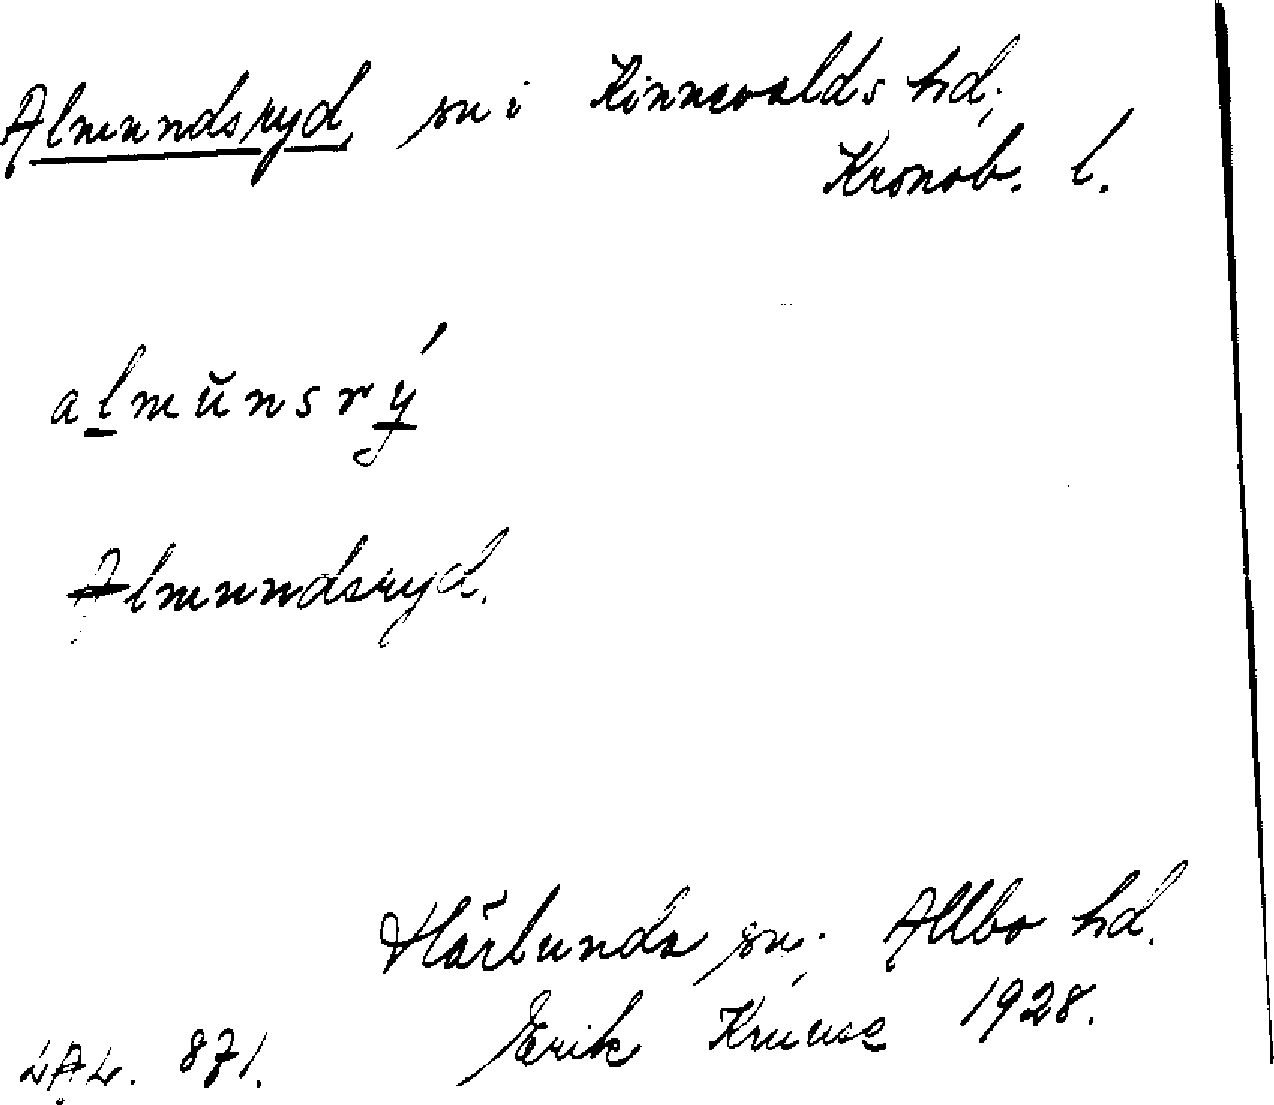 Almundsryd, sn i Kinnevalds hd;
Kronob. l.
almŭnsrý
Almundsryd.
Härlunda sn; Allbo hd.
LAL. 871. Erik Kruuse 1928.